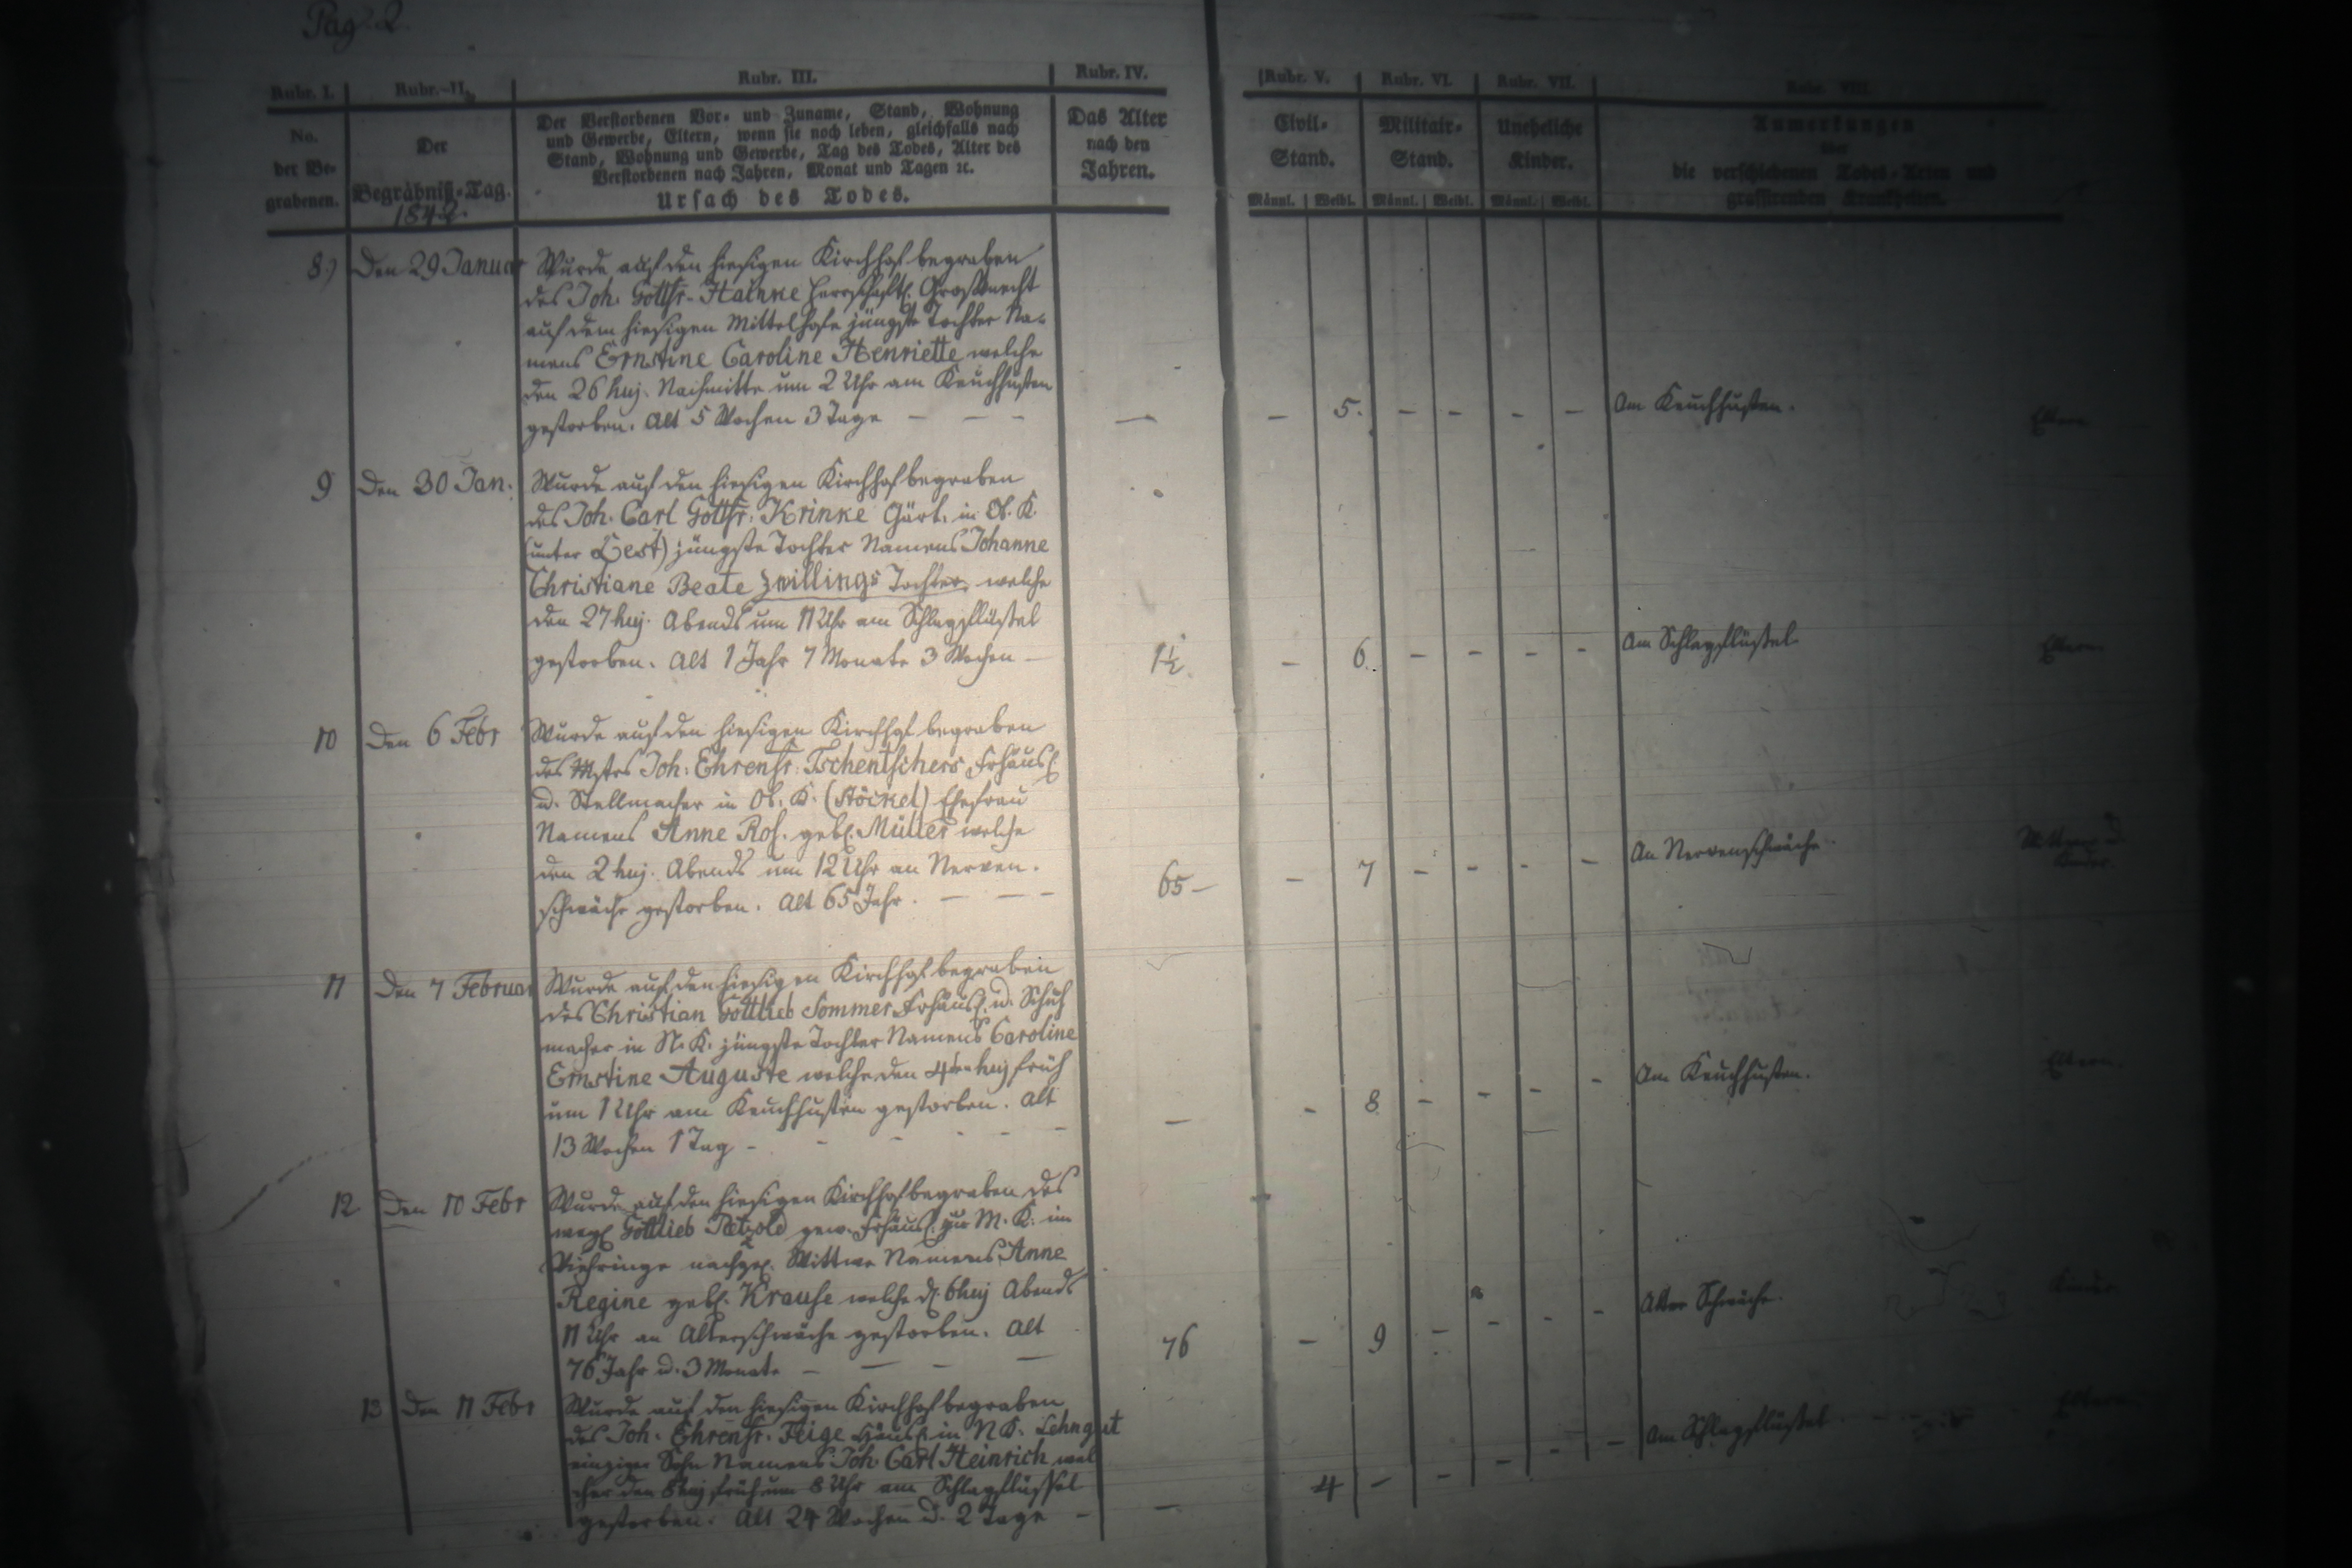 Pag. 2
Rubr. I. Rubr. II. Rubr. III. Rubr. IV. Rubr. V. Rubr. VI. Rubr. VII. Rubr. VIII.
No.
der Be-
grabenen.
Der
Begräbniß-Tag.
1842.
Der Verstorbenen Vor- und Zuname, Stand, Wohnung
und Gewerbe, Eltern, wenn sie noch leben, gleichfalls nach
Stand, Wohnung und Gewerbe, Tag des Todes, Alter des
Verstorbenen nach Jahren, Monat und Tagen ꝛc.
Ursach des Todes.
Das Alter
nach den
Jahren.
Civil-
Stand.
Männl. Weibl.
Militair-
Stand.
Männl. Weibl.
Uneheliche
Kinder.
Männl. Weibl.
Anmerkungen
über
die verschiedenen Todes-Arten und
grassirenden Krankheiten.
8.) Den 29 Januar
Wurde auf den hiesigen Kirchhof begraben
des Joh. Gottfr. Hainke herrschaftl. Großknecht
auf dem hiesigen Mittelhofe jüngste Tochter Na-
mens Ernstine Caroline Henriette welche
den 26 huj. Nachmitts um 2 Uhr am Keuchhusten
gestorben. Alt 5 Wochen 3 Tage — — —
— — 5. — — — — Am Keuchhusten. Eltern
9 Den 30 Jan.
Wurde auf den hiesigen Kirchhof begraben
des Joh. Carl Gottfr. Krinke Gärt. in Ob. K.
(unter Lest) jüngste Tochter Namens Johanne
Christiane Beate Zwillings Tochter, welche
den 27 huj. Abends um 11 Uhr am Schlagflüßel
gestorben. Alt 1 Jahr 7 Monate 3 Wochen —
1½ — 6. — — — — Am Schlagflüßel Eltern
10 Den 6 Febr
Wurde auf den hiesigen Kirchhof begraben
des Mstrs Joh. Ehrenfr. Tschentschers Frhäusl.
u. Stellmacher in Ob. K. (Stöckel) Ehefrau
Namens Anne Ros. gebl. Müller welche
den 2 huj. Abends um 12 Uhr an Nerven-
schwäche gestorben. Alt 65 Jahr. — — —
65 — — 7 — — — — An Nervenschwäche
11 Den 7 Februar
Wurde auf den hiesigen Kirchhof begraben
des Christian Gottlieb Sommer Frhäusl. u. Schuh
macher in N. K. jüngste Tochter Namens Caroline
Ernstine Auguste welche den 4ten huj früh
um 1 Uhr am Keuchhusten gestorben. Alt
13 Wochen 1 Tag — — — — — —
— — 8 — — — — Am Keuchhusten. Eltern.
12 Den 10 Febr
Wurde auf den hiesigen Kirchhof begraben des
weyl Gottlieb Pätzold gew. Frhäusl. zu M. K. im
Viehringe nachgel. Wittwe Namens Anne
Regine gebl. Krause welche d. 6 huj Abends
11 Uhr an Alterschwäche gestorben. Alt
76 Jahr u. 3 Monate — — — —
76 — 9 — — — — Alter Schwäche. Kinder
13 Den 11 Febr
Wurde auf den hiesigen Kirchhof begraben
des Joh. Ehrenfr. Feige Häusl. in N K. Lehngut
einziger Sohn Namens Joh. Carl Heinrich wel
cher den 8 huj früh um 8 Uhr am Schlagflüssel
gestorben. Alt 24 Wochen u. 2 Tage —
— 4 — — — — — Am Schlagflüßel Eltern